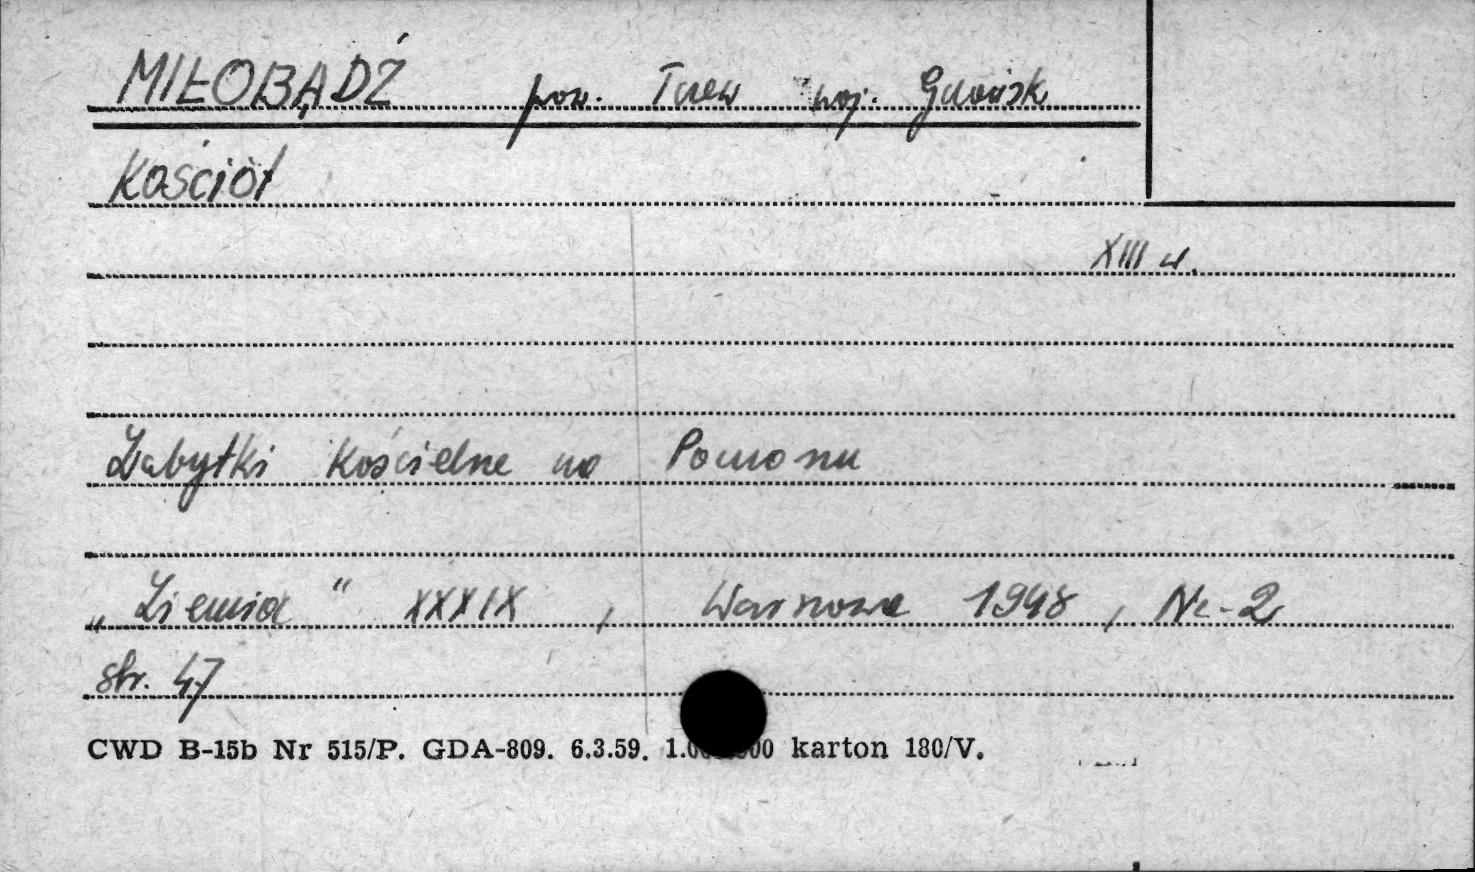 MIŁOBĄDŹ pow. Tczew woj. Gdańsk
Kościół
XIII w.
Zabytki kościelne na Pomorzu
„Ziemia" XXXIX, Warszawa 1948, Nr-2
str. 47
CWD B-15b Nr 515/P. GDA-809. 6.3.59. karton 180/V.